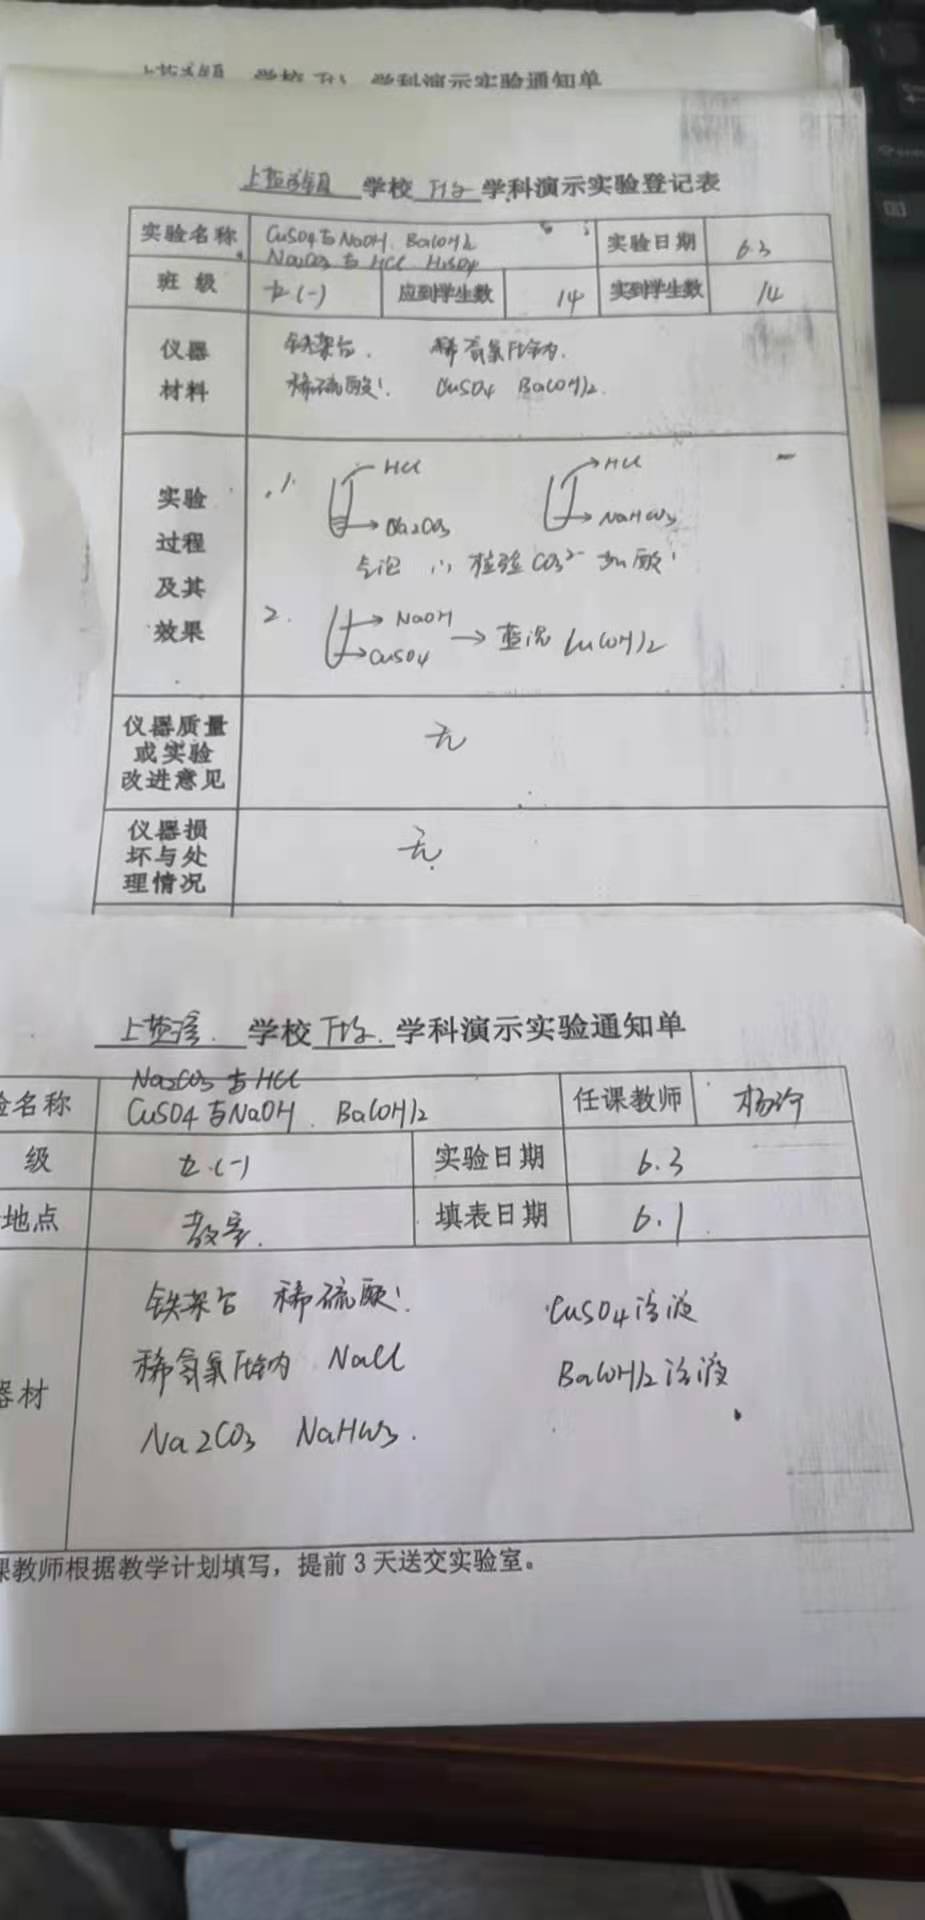 学校 学科演示实验通知单
学校 化学 学科演示实验登记表
实验名称 CuSO4与NaOH、Ba(OH)2 实验日期 6.3
Na2CO3与HCl H2SO4
班级 九(一) 应到学生数 14 实到学生数 14
仪器 铁架台. 稀氢氧化钠.
材料 稀硫酸! CuSO4 Ba(OH)2.
实验 1. HCl HCl
过程 Na2CO3 NaHCO3
及其 结论 (1) 检验CO3²⁻ 加酸!
效果 2. NaOH
CuSO4 → 蓝沉 Cu(OH)2
仪器质量 无
或实验
改进意见
仪器损 无
坏与处
理情况
学校 化学. 学科演示实验通知单
Na2CO3与HCl
验名称 CuSO4与NaOH、Ba(OH)2 任课教师
级 九.(一) 实验日期 6.3
地点 教室. 填表日期 6.1
铁架台 稀硫酸! CuSO4溶液
器材 稀氢氧化钠 NaCl Ba(OH)2溶液
Na2CO3 NaHCO3.
课教师根据教学计划填写，提前3天送交实验室。